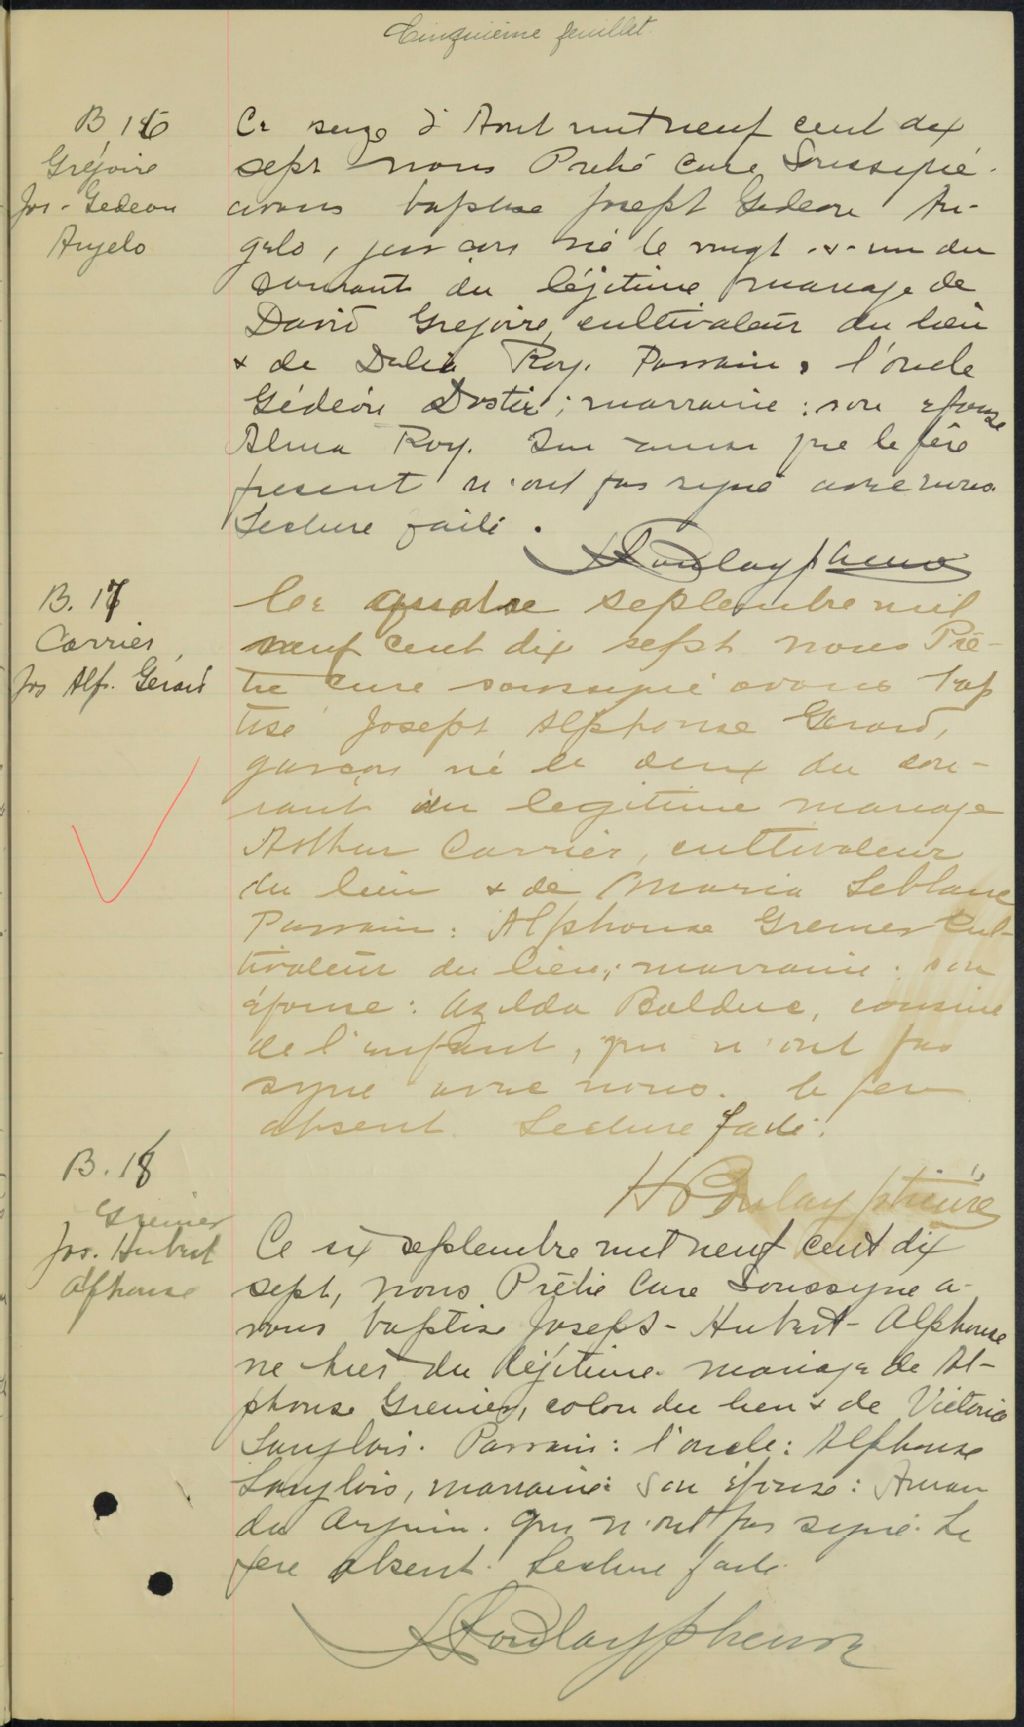 Cinquième feuillet.
B 16
Grégoire
Jos - Gedeon
Angelo
Ce seize d'Aout mil neuf cent dix
sept nous Prêtre Curé Soussigné
avons baptisé Joseph Gedeon An-
gelo, né le vingt & un du
courant du légitime mariage de
David Gregoire, cultivateur du lieu
& de Delia Roy. Parrain, l'oncle
Gédéon Dostie; marraine: son épouse
Alma Roy. que le père
present n'ont pas signé avec nous.
Lecture faite.
H Boulay ptre curé
B. 17
Carrier,
Jos Alf. Gerard
Ce quatre septembre mil
neuf cent dix sept nous Prê-
tre Curé soussigné avons bap
tisé Joseph Alphonse Gerard,
garçon né le deux du cou-
rant du legitime mariage
Arthur Carrier, cultivateur
du lieu & de Maria Leblanc
Parrain: Alphonse Grenier Cul-
tivateur du lieu; marraine: son
épouse: Azilda Bolduc, cousine
de l'enfant, qui n'ont pas
signé avec nous. le pere
absent. Lecture faite.
H Boulay ptre curé
B. 18
Grenier
Jos. Hubert
Alphonse
Ce six septembre mil neuf cent dix
sept, nous Prêtre Curé Soussigné a-
vons baptisé Joseph - Hubert - Alphonse
né hier du légitime mariage de Al-
phonse Grenier, colon du lieu & de Victoria
Langlois. Parrain: l'oncle: Alphonse
Langlois, marraine: Son épouse: Aman
da Arguin. qui n'ont pas signé. Le
père absent. Lecture faite.
H Boulay ptre curé